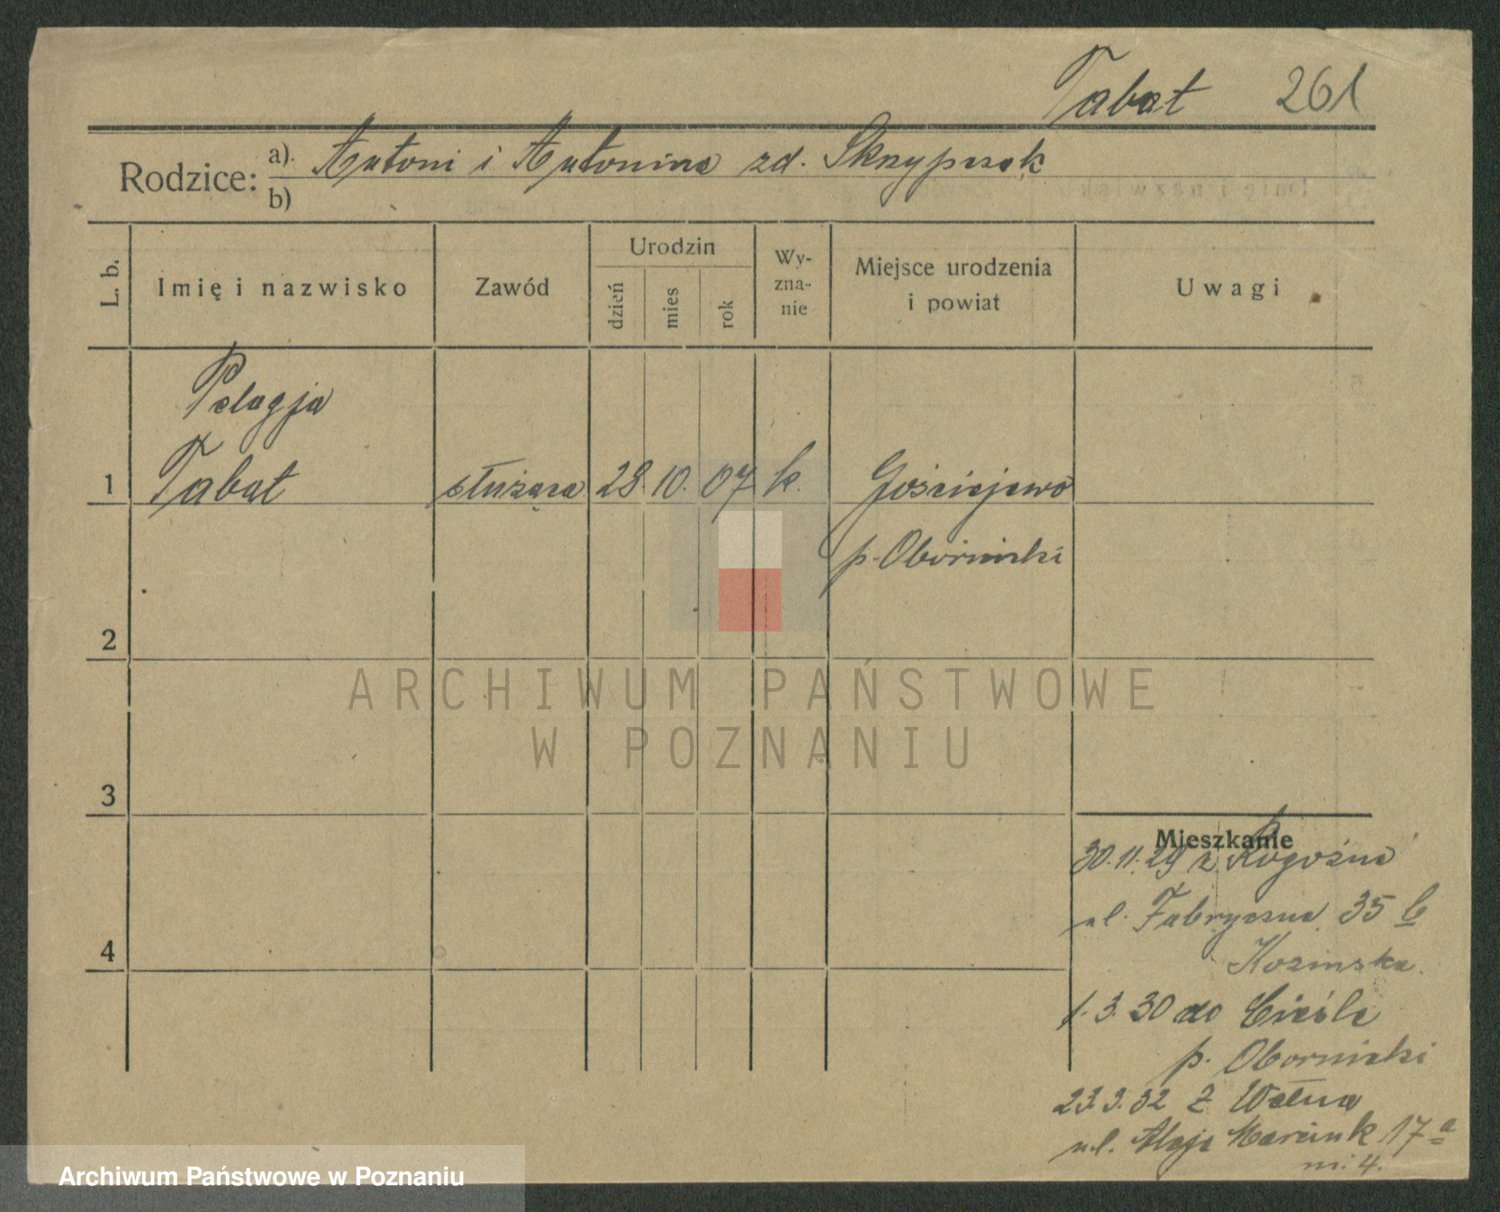 Tabat 261
Rodzice: a). Antoni i Antonina zd. Skrzypczak
b)
L. b. Imię i nazwisko Zawód Urodzin dzień mies rok Wy-zna-nie Miejsce urodzenia i powiat Uwagi
Pelagja
1 Tabat służąca 28 10. 07 k. Gościejewo
p. Obornicki
2
ARCHIWUM PAŃSTWOWE
W POZNANIU
3
Mieszkanie
30.11.29 z Rogoźna
ul. Fabryczna 35 b
Kozinska.
4
1.3.30 do Cieśle
p. Obornicki
23.3.32 z Wełna
ul. Aleje Marcink 17 a
m. 4.
Archiwum Państwowe w Poznaniu